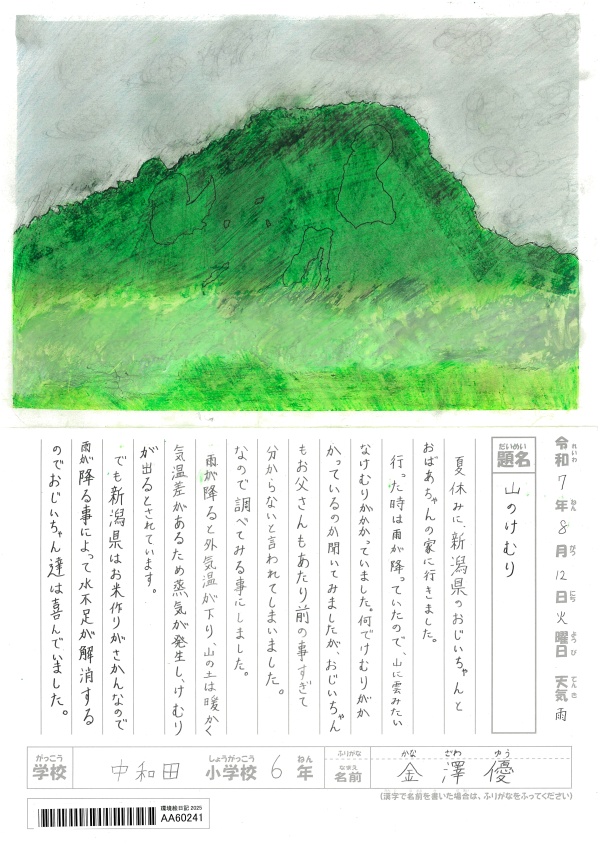 令和7年8月12日火曜日 天気雨
れいわ ねん がつ にち ようび てんき
だいめい
題名 山のけむり
夏休みに、新潟県のおじいちゃんと
おばあちゃんの家に行きました。
行った時は雨が降っていたので、山に雲みたい
なけむりがかかっていました。何でけむりがか
かっているのか聞いてみましたが、おじいちゃん
もお父さんもあたり前の事すぎて
分からないと言われてしまいました。
なので調べてみる事にしました。
雨が降ると外気温が下り、山の土は暖かく
気温差があるため蒸気が発生し、けむり
が出るとされています。
でも新潟県はお米作りがさかんなので
雨が降る事によって水不足が解消する
のでおじいちゃん達は喜んでいました。
がっこう しょうがっこう ねん ふりがな かな ざわ ゆう
学校 中和田 小学校 6年 なまえ 名前 金澤 優
(漢字で名前を書いた場合は、ふりがなをふってください)
環境絵日記 2025
AA60241